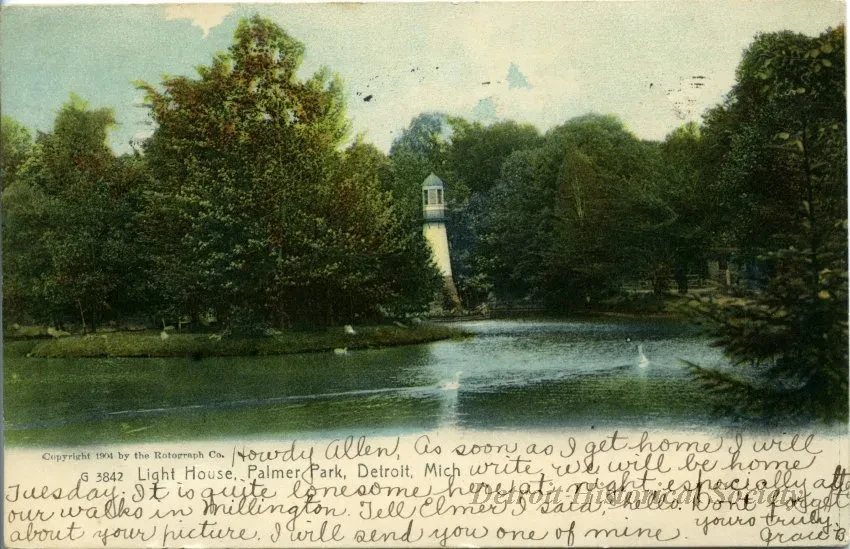 Copyright 1904 by the Rotograph Co.
Howdy Allen, As soon as I get home I will
G 3842 Light House, Palmer Park, Detroit, Mich
write we will be home
Tuesday. It is quite lonesome here at night especially after
our walks in Millington. Tell Elmer I said hello. Dont forget
about your picture. I will send you one of mine.
yours truly.
Grace B
Detroit Historical Society